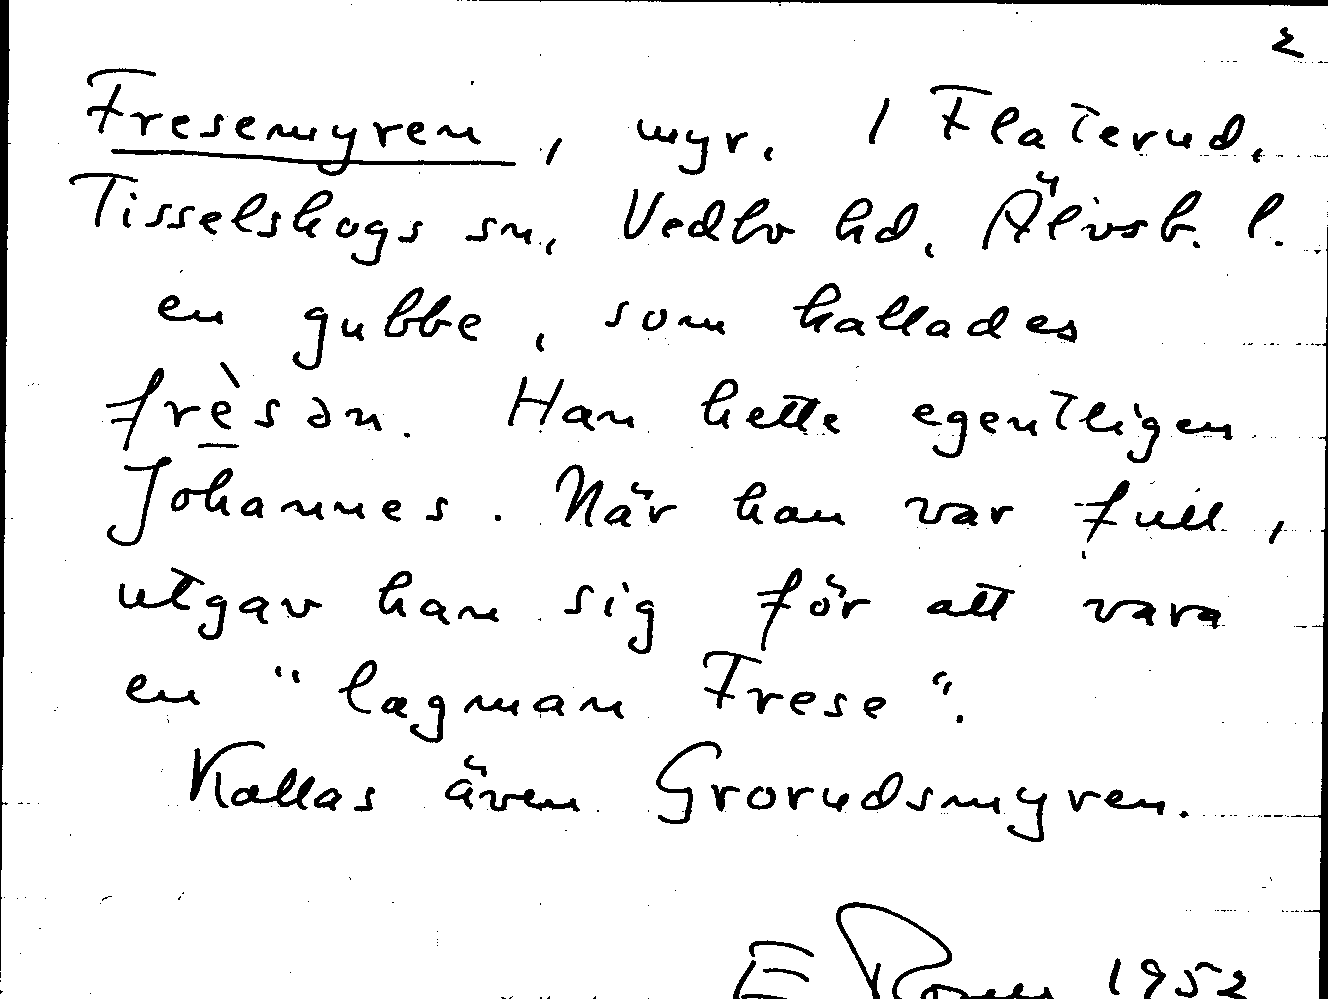 2
Fresemyren, myr. 1 Flaterud,
Tisselskogs sn, Vedbo hd, Älvsb. l.
en gubbe, som kallades
frèsən. Han hette egentligen
Johannes. När han var full,
utgav han sig för att vara
en "lagman Frese".
Kallas även Grorudsmyren.
E 1952